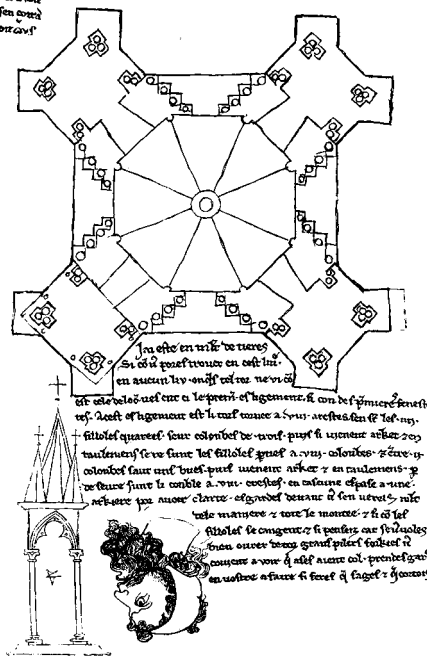 Jai este en mlt de tieres
Si co porez trover en cest liv
en aucun liu onqs tel tor ne vi co
est cele de loō ves ent ci le prem esligement si con des pmieres fenest
tes A cest esligement est li tors tornee a viii arestes sen st les iiii
filloles quarees seur colonbes de trois puis si vienent arket z en
taulemens se re sunt les filloles pties a viii colonbes z entre ii
colonbes saut uns bues puis vienent arket z entaulemens p
deseure sunt li conble a viii crestes en cascune espase a une
arkiere por avoir clarte esgardes devant sen veres mlt
dele maniere z tote le montee z si co les
filloles se cangent z si pensez car se voles
bien ovrer de toz grans pilers forkies
covient avoir q ases aient col prendes gard
en vostre afaire si feres q sages z q cortois